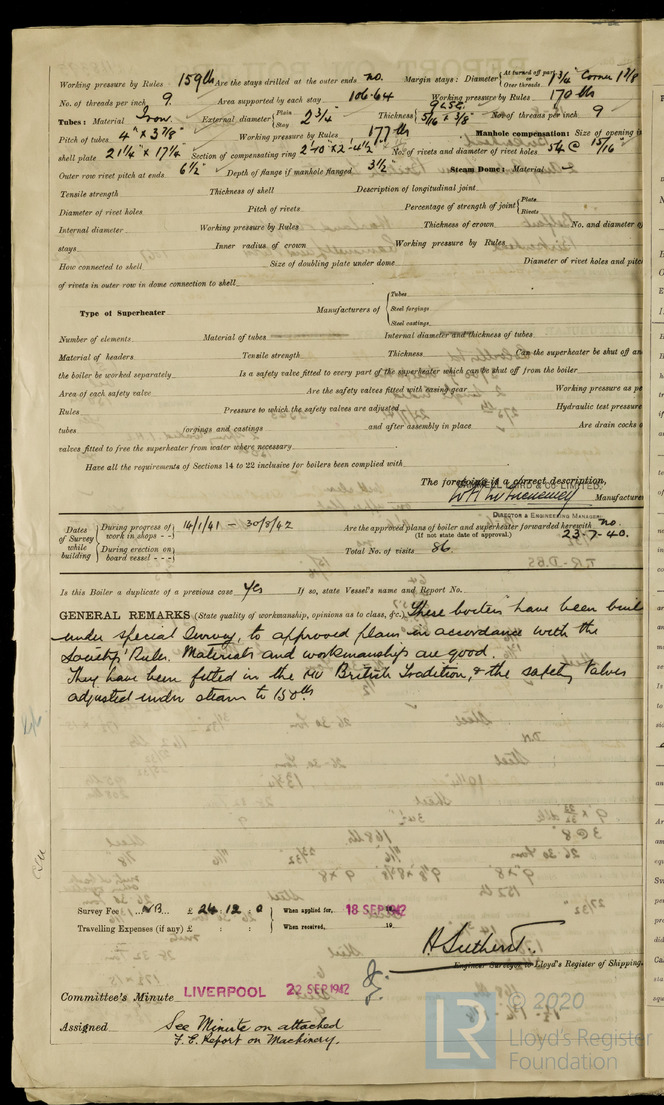 Working pressure by Rules 159 lb Are the stays drilled at the outer ends no. Margin stays: Diameter { At turned off part, or Over threads 1 3/4" Corner 1 7/8
No. of threads per inch 9. Area supported by each stay 106.64 Working pressure by Rules 170 lbs
Tubes: Material Iron. External diameter { Plain Stay 2 3/4" Thickness { 5/16" & 3/8" No. of threads per inch 9
Pitch of tubes 4" x 3 7/8" Working pressure by Rules 177 lb Manhole compensation: Size of opening in
shell plate 21 1/4" x 17 1/4" Section of compensating ring No. of rivets and diameter of rivet holes 54 @ 15/16"
Outer row rivet pitch at ends 6 1/2" Depth of flange if manhole flanged 3 1/2 Steam Dome: Material
Tensile strength Thickness of shell Description of longitudinal joint
Diameter of rivet holes Pitch of rivets Percentage of strength of joint { Plate Rivets
Internal diameter Working pressure by Rules Thickness of crown No. and diameter of
stays Inner radius of crown Working pressure by Rules
How connected to shell Size of doubling plate under dome Diameter of rivet holes and pitch
of rivets in outer row in dome connection to shell
Type of Superheater Manufacturers of { Tubes Steel forgings Steel castings
Number of elements Material of tubes Internal diameter and thickness of tubes
Material of headers Tensile strength Thickness Can the superheater be shut off and
the boiler be worked separately Is a safety valve fitted to every part of the superheater which can be shut off from the boiler
Area of each safety valve Are the safety valves fitted with easing gear Working pressure as per
Rules Pressure to which the safety valves are adjusted Hydraulic test pressure
tubes forgings and castings and after assembly in place Are drain cocks or
valves fitted to free the superheater from water where necessary
Have all the requirements of Sections 14 to 22 inclusive for boilers been complied with
The foregoing is a correct description,
LAIRD & CO LIMITED.
Manufacturer
DIRECTOR & ENGINEERING MANAGER
Dates of Survey while building { During progress of work in shops - - 14/1/41 – 30/5/42 Are the approved plans of boiler and superheater forwarded herewith no.
(If not state date of approval.) 23-7-40.
During erection on board vessel - - Total No. of visits 86
Is this Boiler a duplicate of a previous case Yes If so, state Vessel's name and Report No.
GENERAL REMARKS (State quality of workmanship, opinions as to class, &c.) These boilers have been built
under special survey, to approved plans in accordance with the
Society's Rules. Materials and workmanship are good.
They have been fitted in the MV British Tradition, & the safety valves
adjusted under steam to 150 lbs
Survey Fee £ 24 : 12 : 0 When applied for, 18 SEP 1942
Travelling Expenses (if any) £ : : When received, 19
H Sutherst.
Engineer Surveyor to Lloyd's Register of Shipping.
Committee's Minute LIVERPOOL 22 SEP 1942
Assigned See Minute on attached
F. E. Report on Machinery.
LR © 2020
Lloyd's Register
Foundation